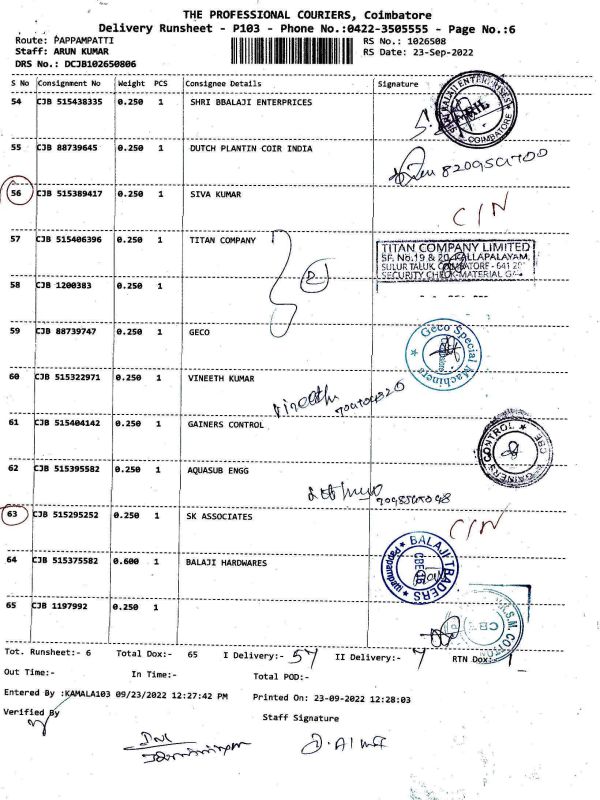 THE PROFESSIONAL COURIERS, Coimbatore
Delivery Runsheet - P103 - Phone No.:0422-3505555 - Page No.:6
Route: PAPPAMPATTI
RS No.: 1026508
Staff: ARUN KUMAR
RS Date: 23-Sep-2022
DRS No.: DCJB102650806
S No Consignment No Weight PCS Consignee Details Signature
54 CJB 515438335 0.250 1 SHRI BBALAJI ENTERPRICES
SHRI BALAJI ENTERPRISES COIMBATORE
55 CJB 88739645 0.250 1 DUTCH PLANTIN COIR INDIA
56 CJB 515389417 0.250 1 SIVA KUMAR
C/N
57 CJB 515406396 0.250 1 TITAN COMPANY
TITAN COMPANY LIMITED
SF. No.19 & 20, KALLAPALAYAM,
SULUR TALUK, COIMBATORE - 641 20
SECURITY CHECK-MATERIAL GA
58 CJB 1200383 0.250 1
59 CJB 88739747 0.250 1 GECO
Geco Special Machiners
60 CJB 515322971 0.250 1 VINEETH KUMAR
Vineeth
61 CJB 515404142 0.250 1 GAINERS CONTROL
GAINERS CONTROL CBE
62 CJB 515395582 0.250 1 AQUASUB ENGG
63 CJB 515295252 0.250 1 SK ASSOCIATES
C/N
64 CJB 515375582 0.600 1 BALAJI HARDWARES
BALAJI TRADERS
Pappampatti
65 CJB 1197992 0.250 1
S.M. COTTON
CBT
Tot. Runsheet:- 6 Total Dox:- 65 I Delivery:- 57 II Delivery:- 7 RTN Dox:- 1
Out Time:- In Time:- Total POD:-
Entered By :KAMALA103 09/23/2022 12:27:42 PM Printed On: 23-09-2022 12:28:03
Verified By
Staff Signature